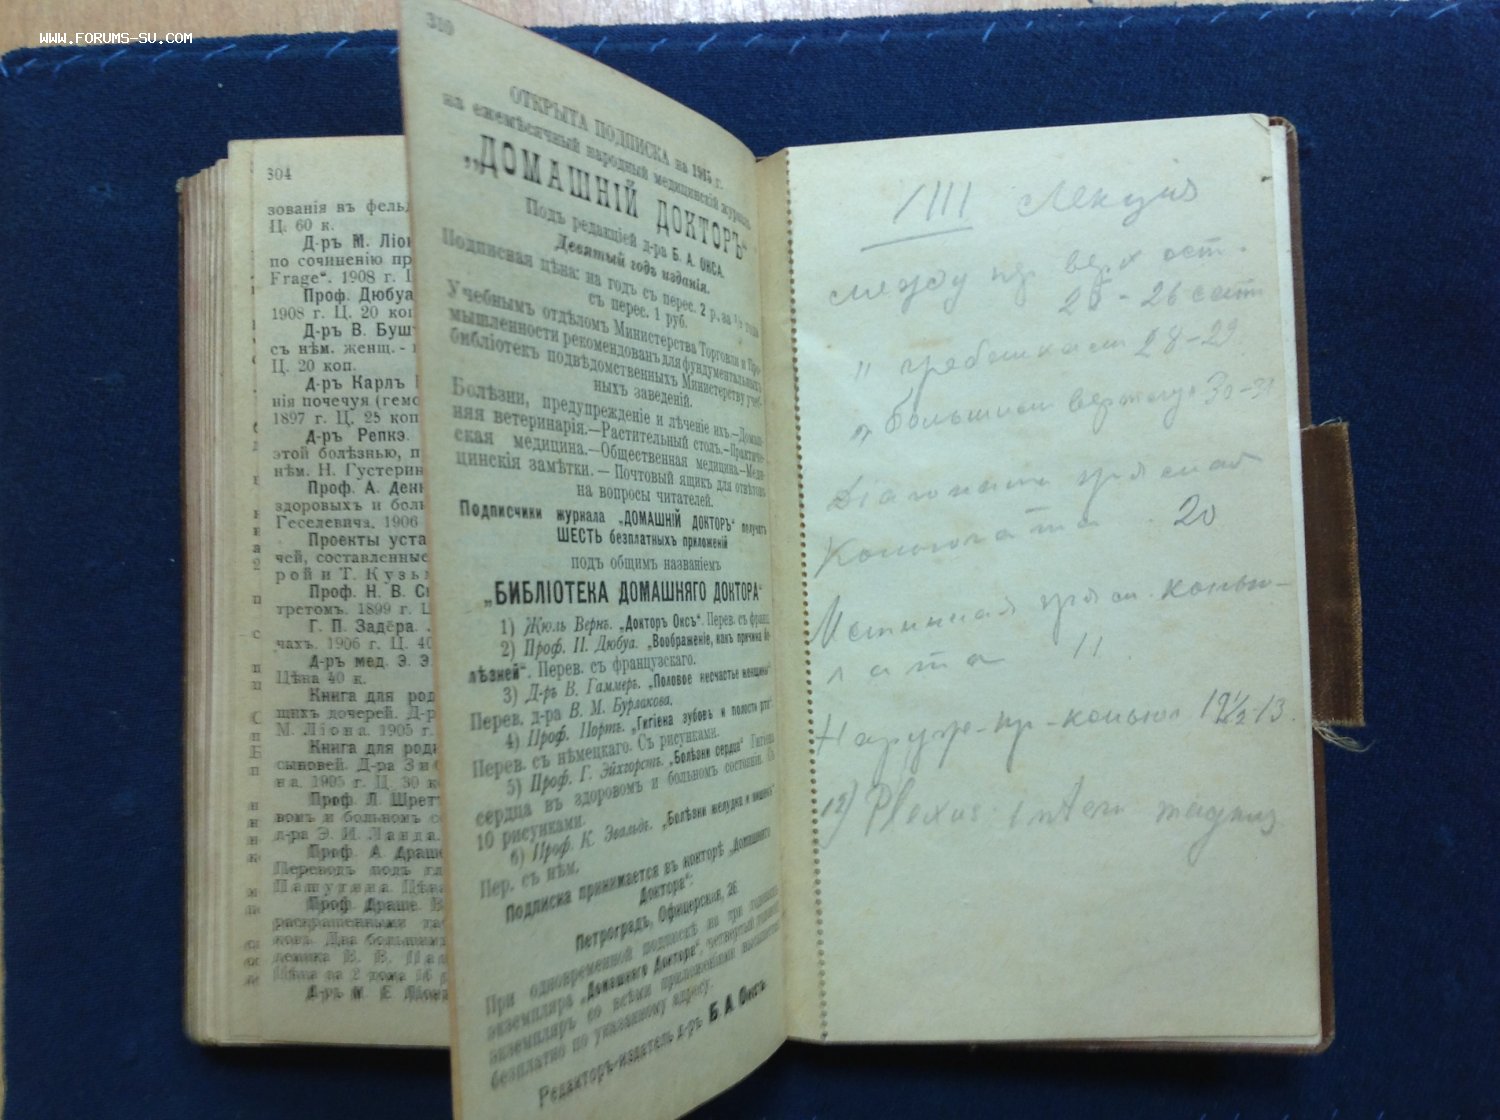 WWW.FORUMS-SU.COM
304
зованія въ фельд
Ц. 60 к.
Д-ръ М. Ліон
по сочиненію пр
Frage“. 1908 г. Ц
Проф. Дюбуа
1908 г. Ц. 20 коп
Д-ръ В. Буш
съ нѣм. женщ. -
Ц. 20 коп.
Д-ръ Карлъ
нія почечуя (гемо
1897 г. Ц. 25 коп
Д-ръ Репкэ.
этой болѣзнью, п
нѣм. Н. Густерин
Проф. А. Денн
здоровыхъ и боль
Геселевича. 1906
Проекты уста
чей, составленные
рой и Т. Кузьм
Проф. Н. В. Ск
третомъ. 1899 г. Ц
Г. П. Задёра.
чахъ. 1906 г. Ц. 40
Д-ръ мед. Э. Э.
Цѣна 40 к.
Книга для род
щихъ дочерей. Д-р
М. Ліона. 1905 г.
Книга для роди
сыновей. Д-ра Зиб
на. 1905 г. Ц. 30 к
Проф. Л. Шрет
вомъ и больном со
д-ра Э. И. Ланда.
Проф. А. Драше
Переводъ подъ гл
Пашутина. Цѣна
Проф. Драше. В
раскрашенными таб
ковъ. Два большихъ
Цѣна за 2 тома 14 р
Д-ръ М. Е. Ліон
310
ОТКРЫТА ПОДПИСКА на 1915 г.
на ежемѣсячный народный медицинскій журналъ
„ДОМАШНІЙ ДОКТОРЪ“
Подъ редакціей д-ра Б. А. ОКСА.
Девятый годъ изданія.
Подписная цѣна: на годъ съ перес. 2 р., за ½ года
съ перес. 1 руб.
Учебнымъ отдѣломъ Министерства Торговли и Про-
мышленности рекомендованъ для фундументальныхъ
библіотекъ подвѣдомственныхъ Министерству учеб-
ныхъ заведеній.
Болѣзни, предупрежденіе и лѣченіе ихъ.—Домаш-
няя ветеринарія.—Растительный столъ.—Практиче-
ская медицина.—Общественная медицина.—Меди-
цинскія замѣтки. — Почтовый ящикъ для отвѣтовъ
на вопросы читателей.
Подписчики журнала „ДОМАШНІЙ ДОКТОРЪ“ получатъ
ШЕСТЬ безплатныхъ приложеній
подъ общимъ названіемъ
„БИБЛІОТЕКА ДОМАШНЯГО ДОКТОРА“
1) Жюль Вернъ. „Докторъ Оксъ“. Перев. съ франц.
2) Проф. П. Дюбуа. „Воображеніе, какъ причина бо-
лѣзней“. Перев. съ французскаго.
3) Д-ръ В. Гаммеръ. „Половое несчастье женщины“
Перев. д-ра В. М. Бурлакова.
4) Проф. Портъ. „Гигіена зубовъ и полости рта“.
Перев. съ нѣмецкаго. Съ рисунками.
5) Проф. Г. Эйхгорстъ. „Болѣзни сердца“ Гигіена
сердца въ здоровомъ и больномъ состояніи. Съ
10 рисунками.
6) Проф. К. Эвальдъ. „Болѣзни желудка и кишекъ“
Пер. съ нѣм.
Подписка принимается въ конторѣ „Домашняго
Доктора“:
Петроградъ, Офицерская, 26.
При одновременной подпискѣ на три годовыхъ
экземпляра „Домашняго Доктора“, четвертый годовой
экземпляръ со всѣми приложеніями высылается
безплатно по указанному адресу.
Редакторъ-издатель д-ръ Б. А. Оксъ.
VIII Лекция
между пер. верх ост.
25 - 26 сант
" гребешками 28-29
" большими вертелу 30-31
Діагональ прямая
Коньюгата 20
Истинная прям. конью-
гата 11
Наруж-пр-коньюг 19½
12) Plexus